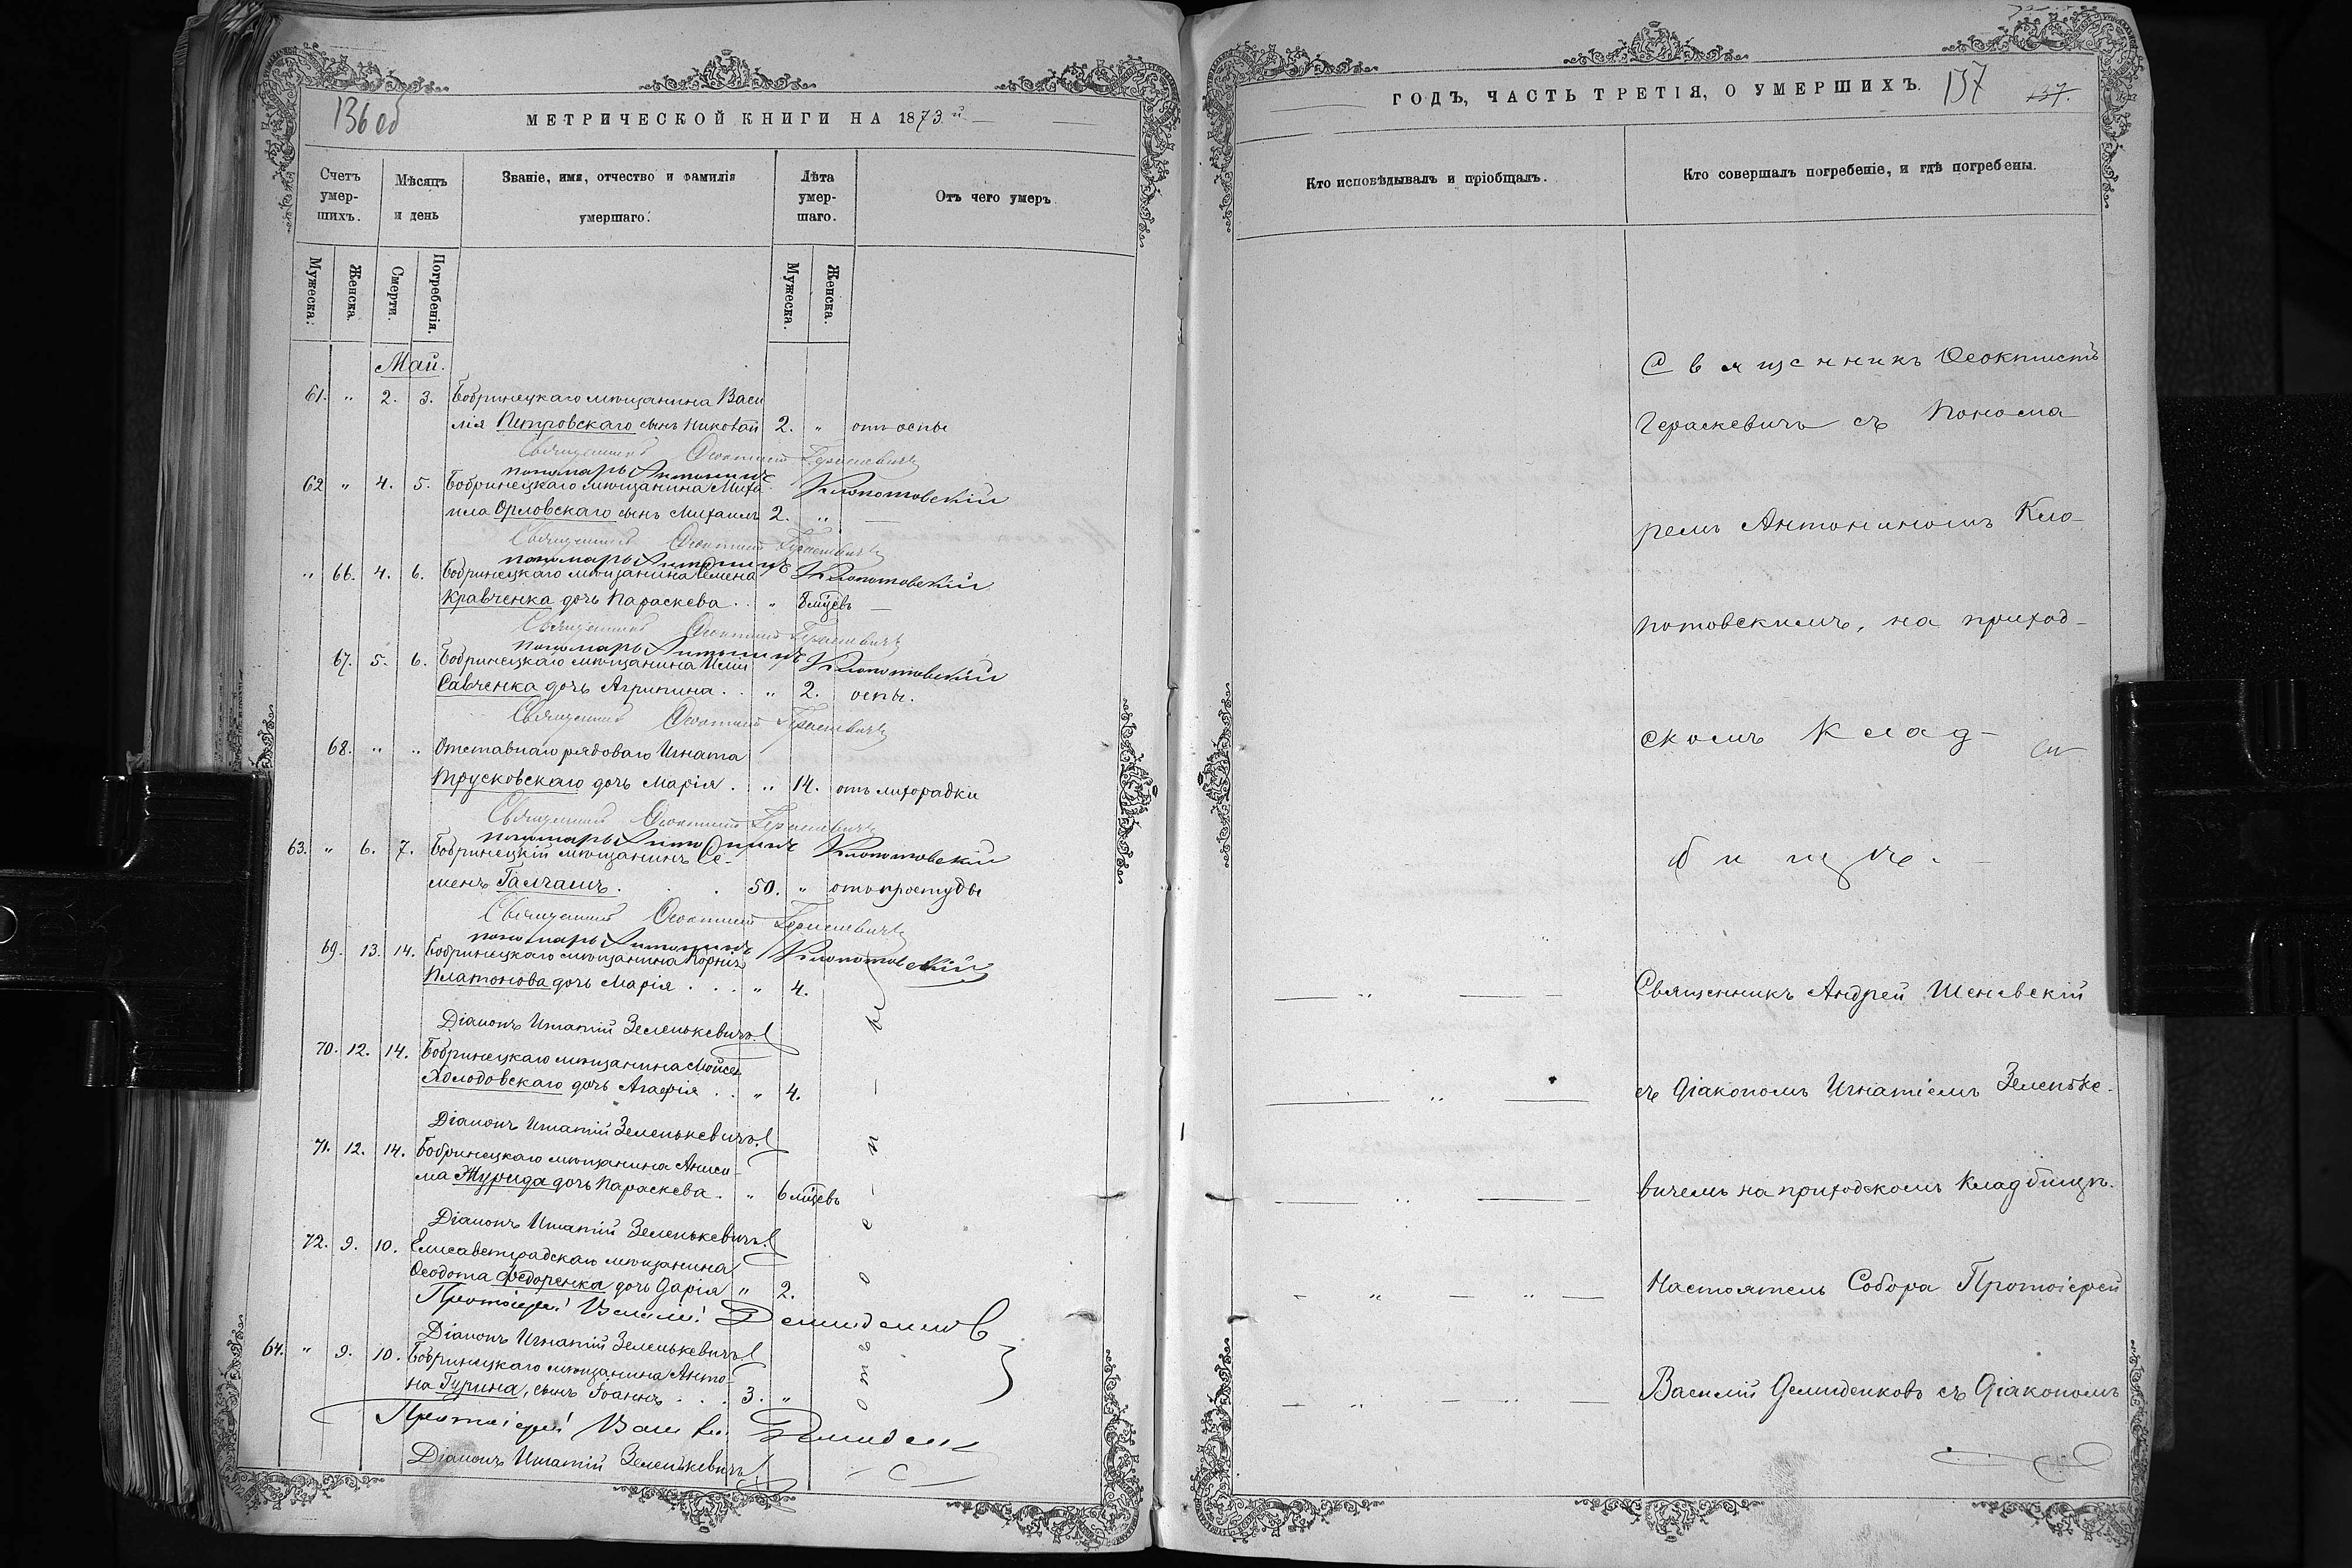 136 об
МЕТРИЧЕСКОЙ КНИГИ НА 1873й
Счетъ умер-шихъ.
Мѣсяцъ и день
Званіе, имя, отчество и фамилія умершаго.
Лѣта умер-шаго.
Отъ чего умеръ.
Мужеска.
Женска.
Смерти.
Погребенія.
Мужеска.
Женска.
Май.
61. " 2. 3. Бобринецкаго мѣщанина Васи
лія Петровскаго сынъ Николай 2. " отъ оспы
Священникъ Ѳеоктистъ Гераскевичъ
пономарь Антонинъ Клопотовскій
62 " 4. 5. Бобринецкаго мѣщанина Миха
ила Орловскаго сынъ Михаилъ 2. " —
Священникъ Ѳеоктистъ Гераскевичъ
пономарь Антонинъ Клопотовскій
" 66. 4. 6. Бобринецкаго мѣщанина Семена
Кравченка дочь Параскева . . " 8 мцевъ —
Священникъ Ѳеоктистъ Гераскевичъ
пономарь Антонинъ Клопотовскій
67. 5. 6. Бобринецкаго мѣщанина
Савченка дочь Агрипина . . " 2. оспы.
Священникъ Ѳеоктистъ Гераскевичъ
68. " " Отставнаго рядоваго Игната
Трусковскаго дочь Марія . " 14. отъ лихорадки
Священникъ Ѳеоктистъ Гераскевичъ
пономарь Антонинъ Клопотовскій
63. " 6. 7. Бобринецкій мѣщанинъ Се-
менъ Галчашъ . . 50. " отъ простуды
Священникъ Ѳеоктистъ Гераскевичъ
пономарь Антонинъ Клопотовскій
69. 13. 14. Бобринецкаго мѣщанина Корнія
Платонова дочь Марія . . . " 4.
Діаконъ Игнатій Зеленькевичъ
70. 12. 14. Бобринецкаго мѣщанина Мойсея
Холодовскаго дочь Агафія . . " 4.
Діаконъ Игнатій Зеленькевичъ
71. 12. 14. Бобринецкаго мѣщанина Аниси-
ма Журида дочь Параскева . " 6 мцевъ
Діаконъ Игнатій Зеленькевичъ
72. 9. 10. Елисаветградскаго мѣщанина
Ѳеодота Федоренка дочь Дарія " 2.
Протоіерей Василій Демиденков
Діаконъ Игнатій Зеленькевичъ
64. " 9. 10. Бобринецкаго мѣщанина Анто-
на Гурина, сынъ Іоаннъ . . . 3. "
отъ оспы
Протоіерей Васи
Діаконъ Игнатій Зеленькевичъ
ГОДЪ, ЧАСТЬ ТРЕТІЯ, О УМЕРШИХЪ.
137
137.
Кто исповѣдывалъ и пріобщалъ.
Кто совершалъ погребеніе, и гдѣ погребены.
Священникъ Ѳеоктистъ
Гераскевичъ съ Понома
ремъ Антониномъ Кло-
потовскимъ, на приход-
скомъ Клад-
бищѣ.
Священникъ Андрей Шеневскій
съ Діакономъ Игнатіемъ Зеленьке-
вичемъ на приходскомъ Кладбищѣ.
Настоятель Собора Протоіерей
Василій Демиденковъ съ Діакономъ